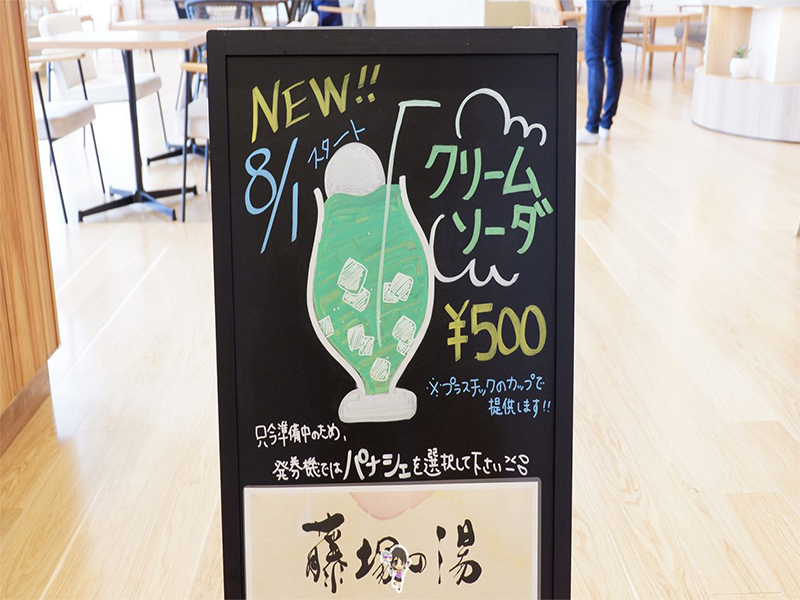 NEW!!
8/1 スタート
クリーム
ソーダ
¥500
※プラスチックのカップで
提供します!!
只今準備中のため、
発券機ではパナシェを選択して下さい
藤塚の湯